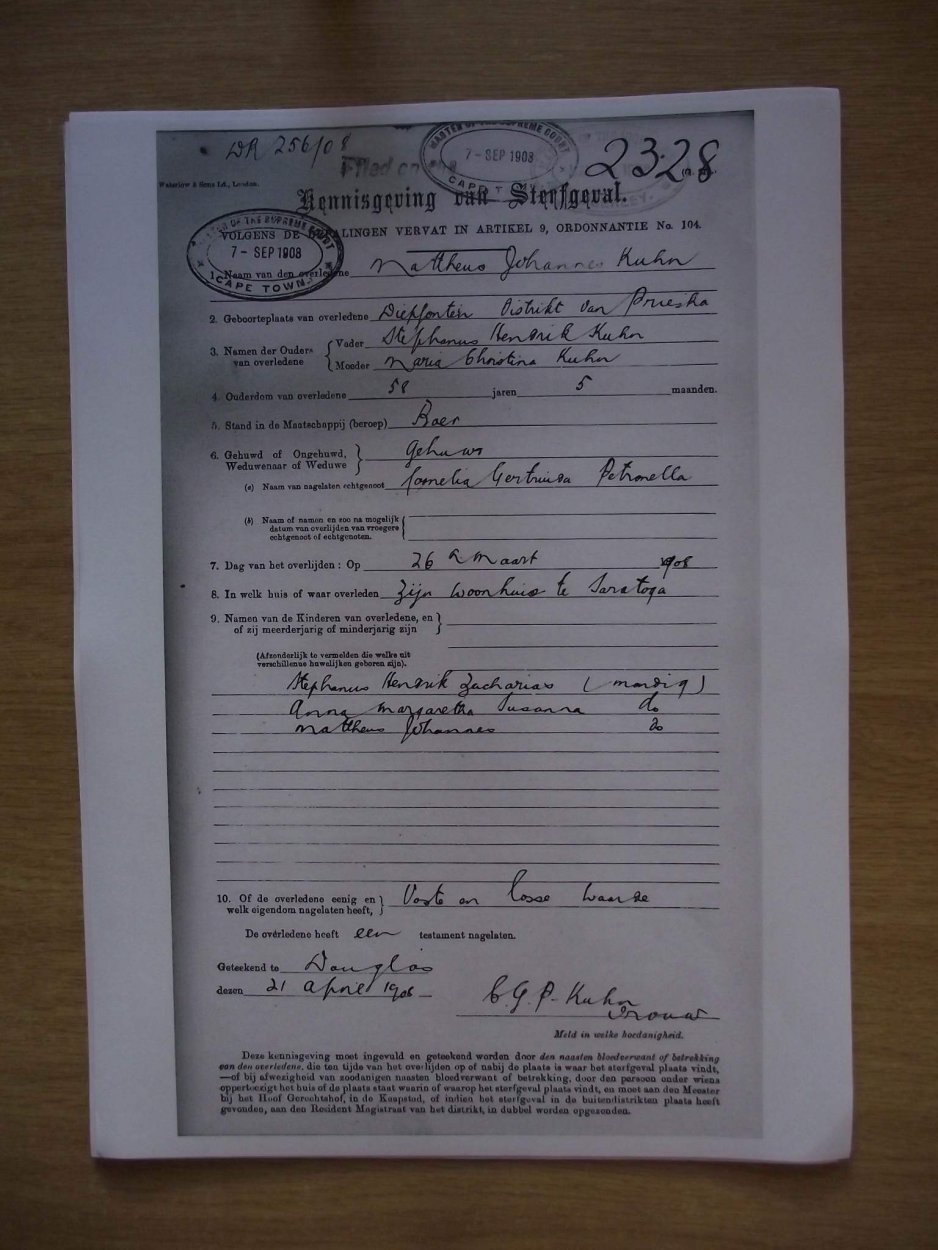 DR 256/08
Filed
MASTER OF THE SUPREME COURT
7 - SEP 1908
CAPE T
2328
Waterlow & Sons Ld., London.
Kennisgeving van Sterfgeval.
VOLGENS DE BEPALINGEN VERVAT IN ARTIKEL 9, ORDONNANTIE No. 104.
OF THE SUPREME COURT
7 - SEP 1908
CAPE TOWN
1. Naam van den overledene Mattheus Johannes Kuhn
2. Geboorteplaats van overledene Diepfontein Distrikt van Prieska
3. Namen der Ouders van overledene { Vader Stephanus Hendrik Kuhn
Moeder Maria Christina Kuhn
4. Ouderdom van overledene 58 jaren 5 maanden.
5. Stand in de Maatschappij (beroep) Boer
6. Gehuwd of Ongehuwd, Weduwenaar of Weduwe } Gehuwd
(a) Naam van nagelaten echtgenoot Cornelia Gertruida Petronella
(b) Naam of namen en zoo na mogelijk
datum van overlijden van vroegere
echtgenoot of echtgenoten.
7. Dag van het overlijden: Op 26 Maart 1908
8. In welk huis of waar overleden Zijn woonhuis te Saratoga
9. Namen van de Kinderen van overledene, en
of zij meerderjarig of minderjarig zijn
(Afzonderlijk te vermelden die welke uit
verschillende huwelijken geboren zijn).
Stephanus Hendrik Zacharias (mondig)
Anna Margaretha Susanna do
Mattheus Johannes do
10. Of de overledene eenig en
welk eigendom nagelaten heeft, } Vaste en losse waarde
De overledene heeft een testament nagelaten.
Geteekend te Douglas
dezen 21 April 1908
C. G. P. Kuhn
Vrouw
Meld in welke hoedanigheid.
Deze kennisgeving moet ingevuld en geteekend worden door den naasten bloedverwant of betrekking
van den overledene, die ten tijde van het overlijden op of nabij de plaats is waar het sterfgeval plaats vindt,
—of bij afwezigheid van zoodanigen naasten bloedverwant of betrekking, door den persoon onder wiens
oppertoezigt het huis of de plaats staat waarin of waarop het sterfgeval plaats vindt, en moet aan den Meester
bij het Hoof Gerechtshof, in de Kaapstad, of indien het sterfgeval in de buitendistrikten plaats heeft
gevonden, aan den Resident Magistraat van het distrikt, in dubbel worden opgezonden.